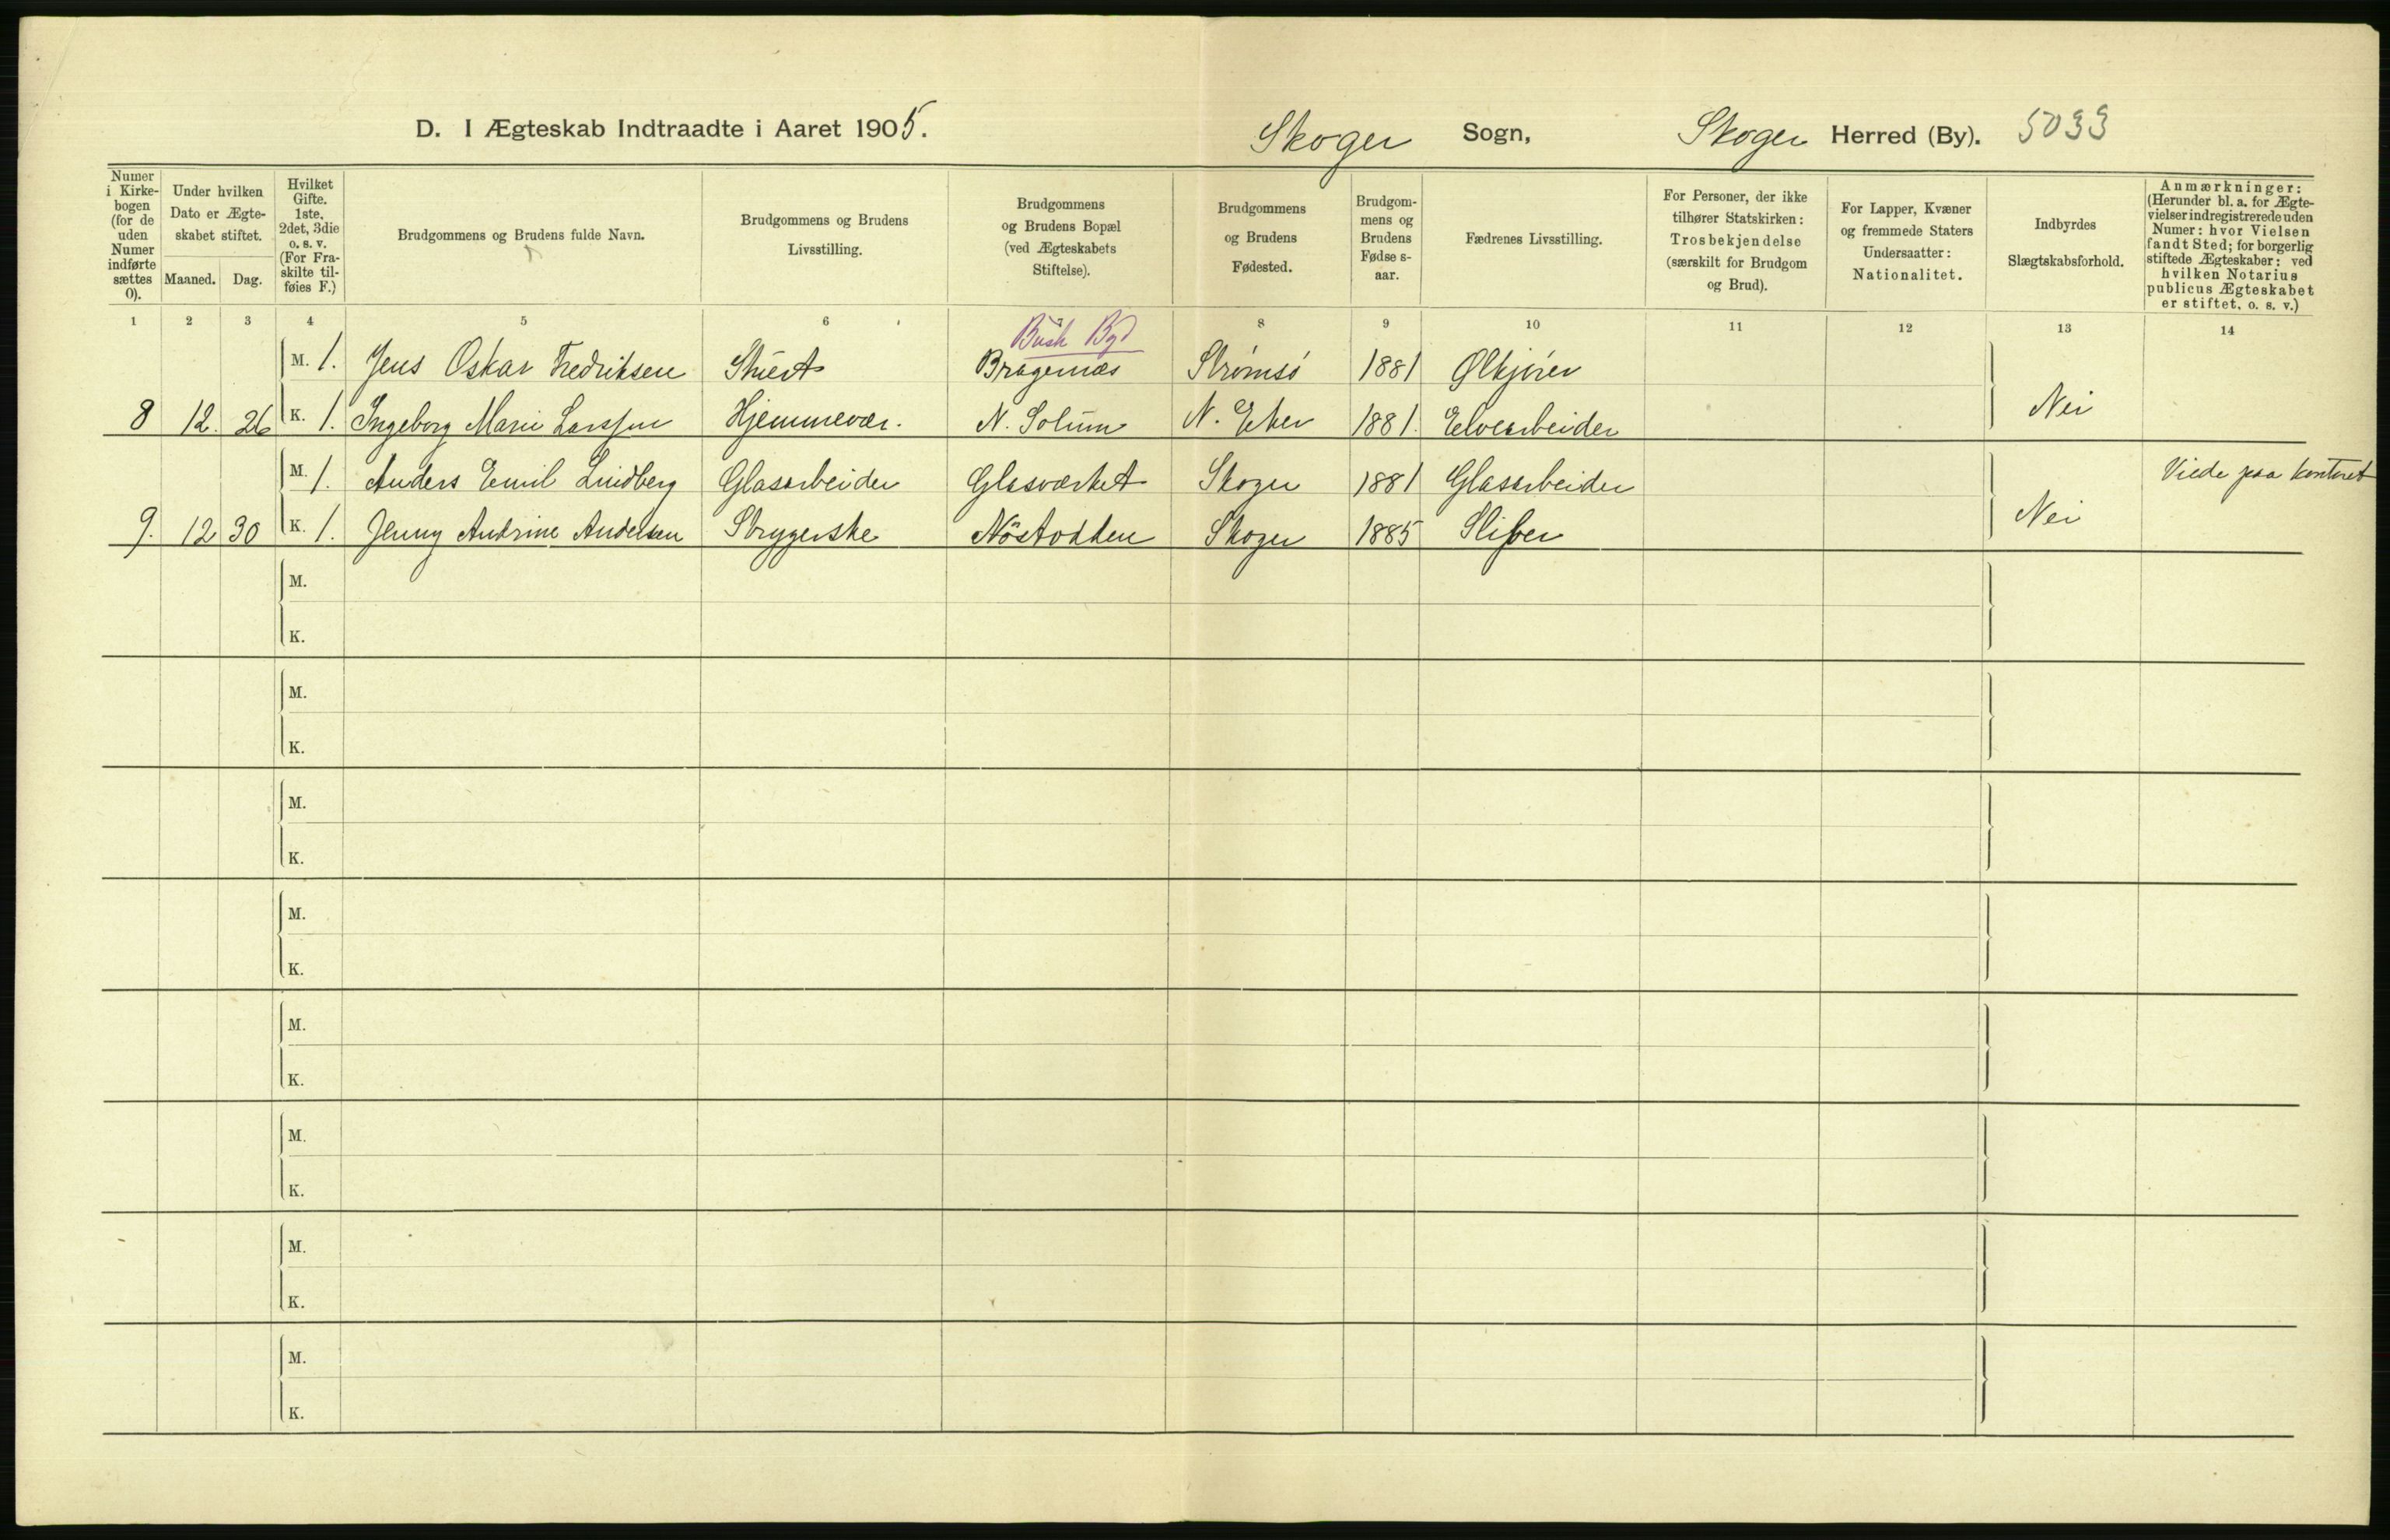 D. I Ægteskab Indtraadte i Aaret 1905.
Skoger Sogn, Skoger Herred (By). 5033
Numer i Kirkebogen (for de uden Numer indførte sættes 0).
Under hvilken Dato er Ægteskabet stiftet.
Maaned. Dag.
Hvilket Gifte. 1ste, 2det, 3die o. s. v. (For Fraskilte tilføies F.)
Brudgommens og Brudens fulde Navn.
Brudgommens og Brudens Livsstilling.
Brudgommens og Brudens Bopæl (ved Ægteskabets Stiftelse).
Brudgommens og Brudens Fødested.
Brudgommens og Brudens Fødse s-aar.
Fædrenes Livsstilling.
For Personer, der ikke tilhører Statskirken: Trosbekjendelse (særskilt for Brudgom og Brud).
For Lapper, Kvæner og fremmede Staters Undersaatter: Nationalitet.
Indbyrdes Slægtskabsforhold.
Anmærkninger: (Herunder bl. a. for Ægtevielser indregistrerede uden Numer: hvor Vielsen fandt Sted; for borgerlig stiftede Ægteskaber: ved hvilken Notarius publicus Ægteskabet er stiftet, o. s. v.)
1 2 3 4 5 6 7 8 9 10 11 12 13 14
Busk Byd
M. 1. Jens Oskar Fredriksen Stuert Bragernæs Strömsö 1881 Ølkjörer
8 12. 26 K. 1. Ingeborg Marie Larssen Hjemmevær. N. Solum N. Eker 1881. Elvearbeider Nei
M. 1. Anders Emil Lindberg Glasarbeider Glasværket Skoger 1881 Glasarbeider Viede paa kontoret
9. 12 30 K. 1. Jenny Andrine Andersen Strygerske Nöstodden Skoger 1885 Sliper Nei
M.
K.
M.
K.
M.
K.
M.
K.
M.
K.
M.
K.
M.
K.
M.
K.